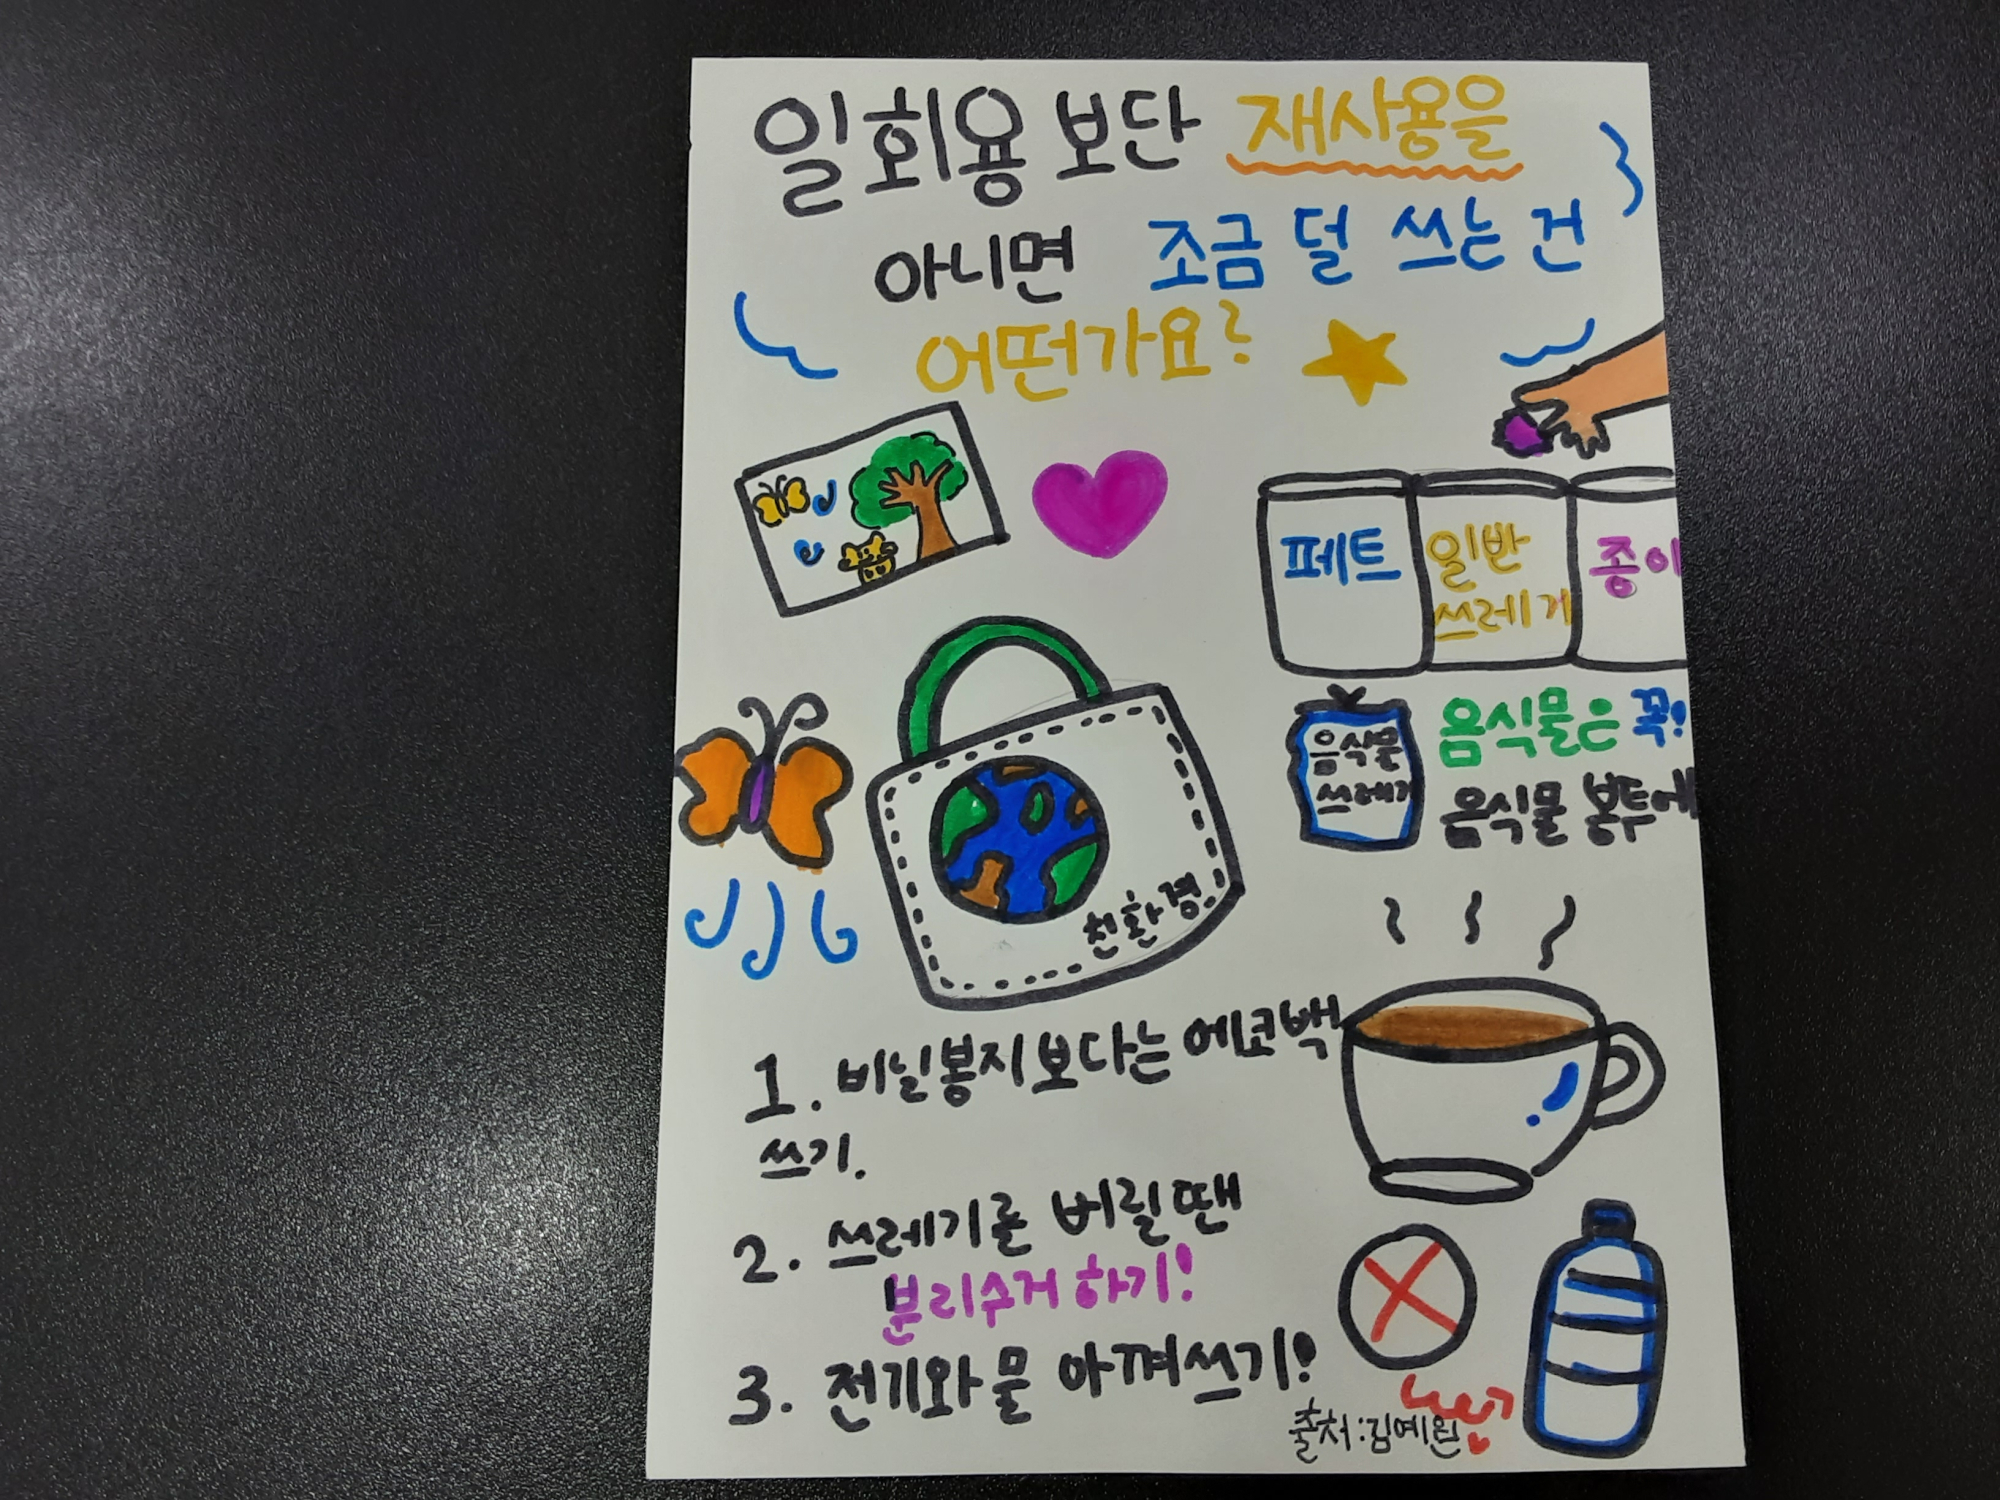 일회용 보단 재사용을
아니면 조금 덜 쓰는 건
어떤가요?
페트
일반
쓰레기
종이
음식물
쓰레기
음식물은 꼭!
음식물 봉투에
친환경
1. 비닐봉지보다는 에코백
쓰기.
2. 쓰레기를 버릴땐
분리수거 하기!
3. 전기와 물 아껴쓰기!
출처:김예원